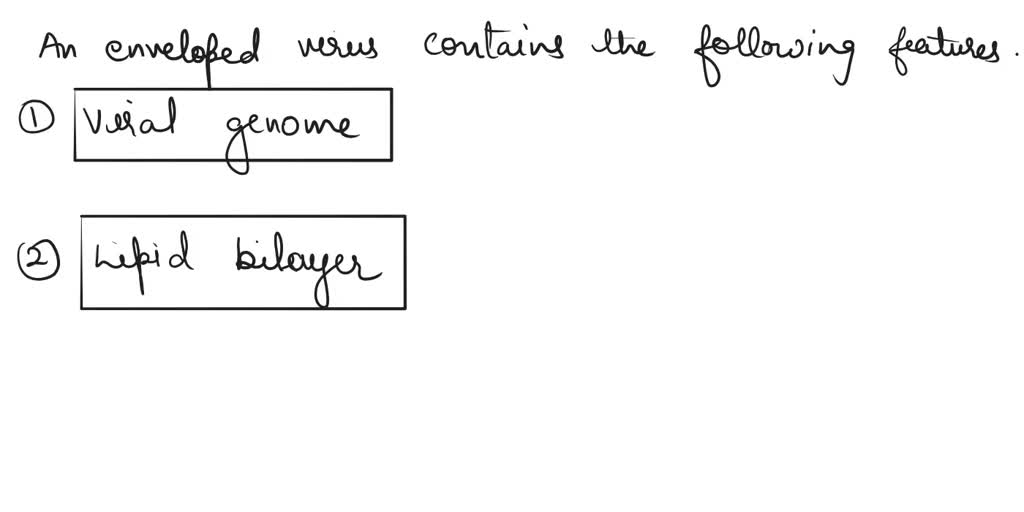 An enveloped virus contains the following features.
① Viral genome
② Lipid bilayer